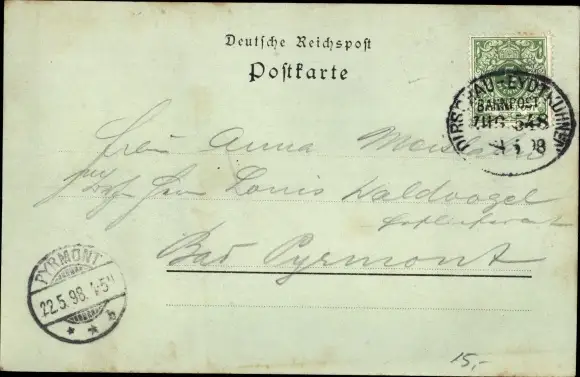 Deutsche Reichspost
Postkarte
DIRSCHAU-EYDTKUHNEN
BAHNPOST
ZUG 548
Anna
Herrn Louis Waldvogel
Bad Pyrmont
PYRMONT
22.5.98.
* * b
15,-